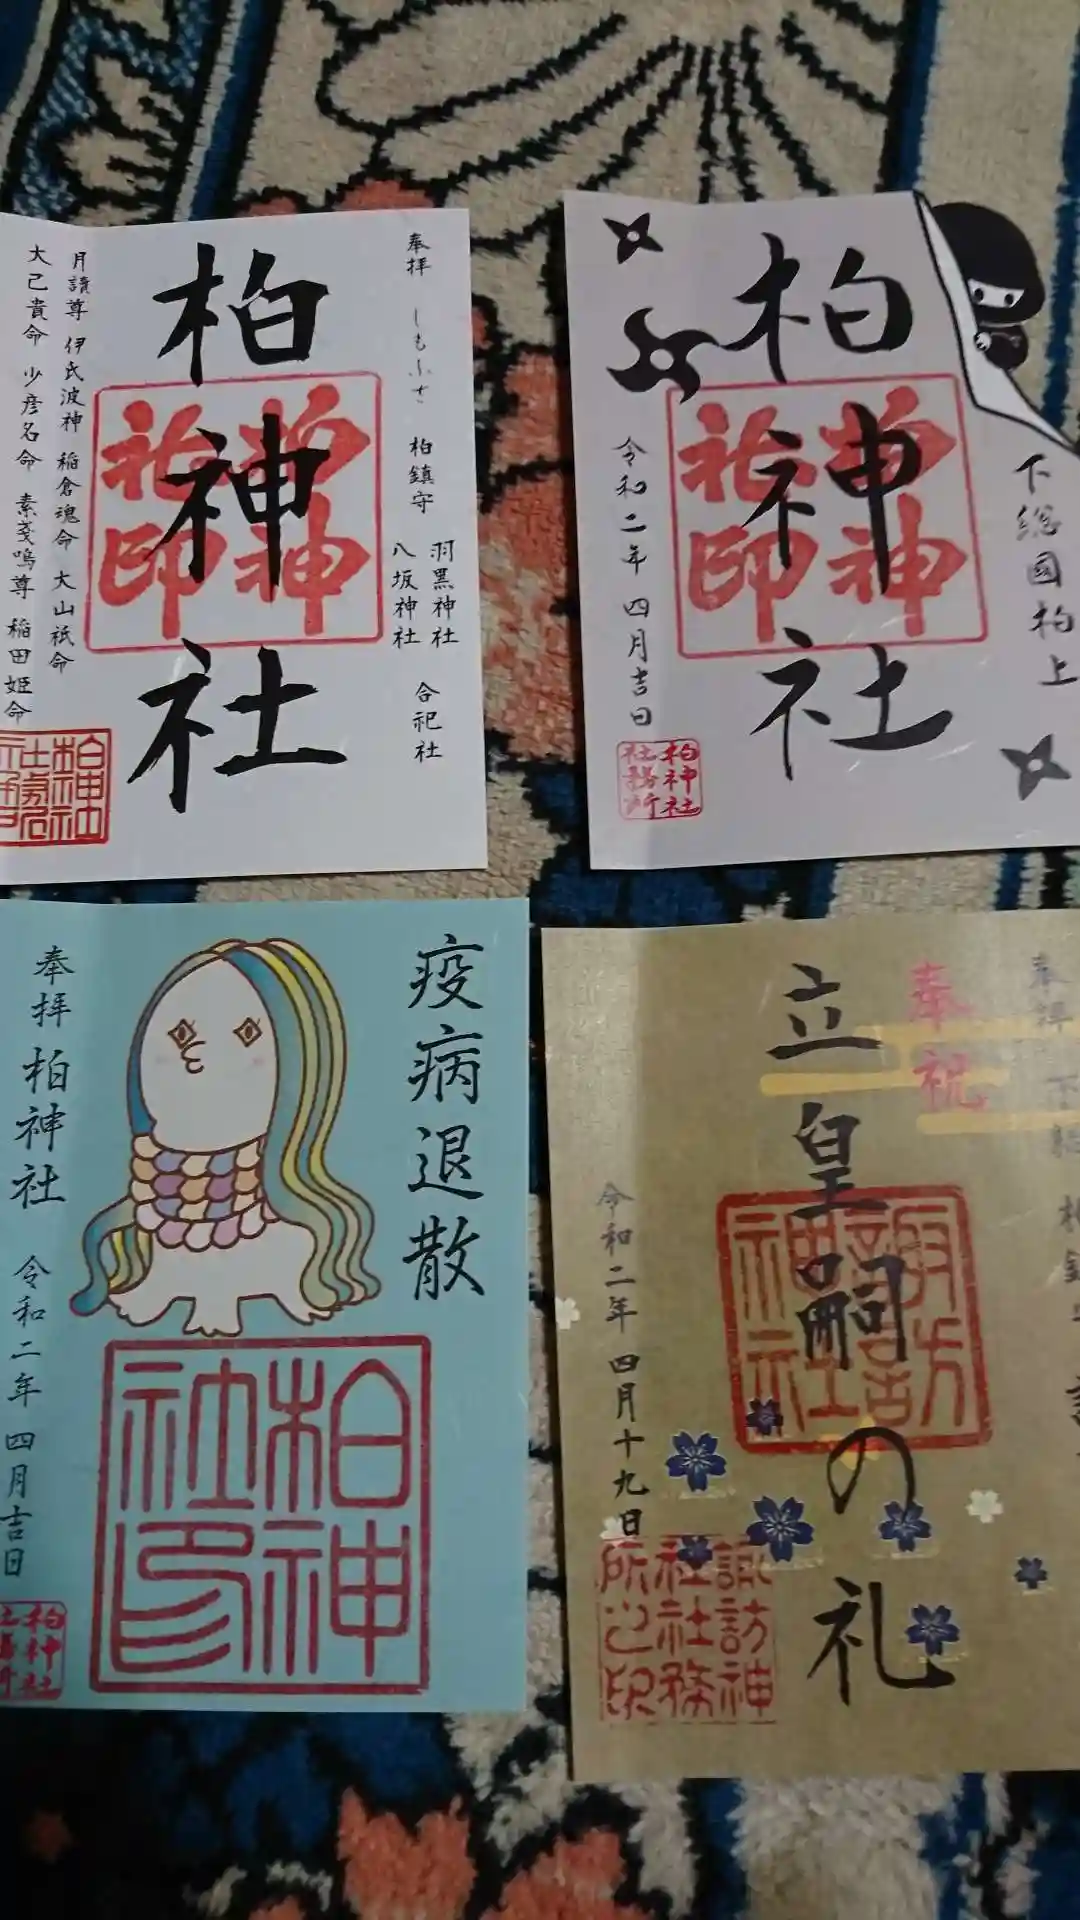 奉拝 しもふさ 柏鎮守 羽黒神社 八坂神社 合祀社
柏神社
柏神社印
月讀尊 伊氐波神 稲倉魂命 大山祇命
大己貴命 少彦名命 素戔嗚尊 稲田姫命
下総國柏上
柏神社
柏神社印
令和二年 四月吉日
柏神社社務所
疫病退散
奉拝 柏神社
令和二年 四月吉日
柏神社印
奉拝 下総 柏鎮守
奉祝
立皇嗣の礼
諏訪神社
令和二年 四月十九日
諏訪神社社務所之印